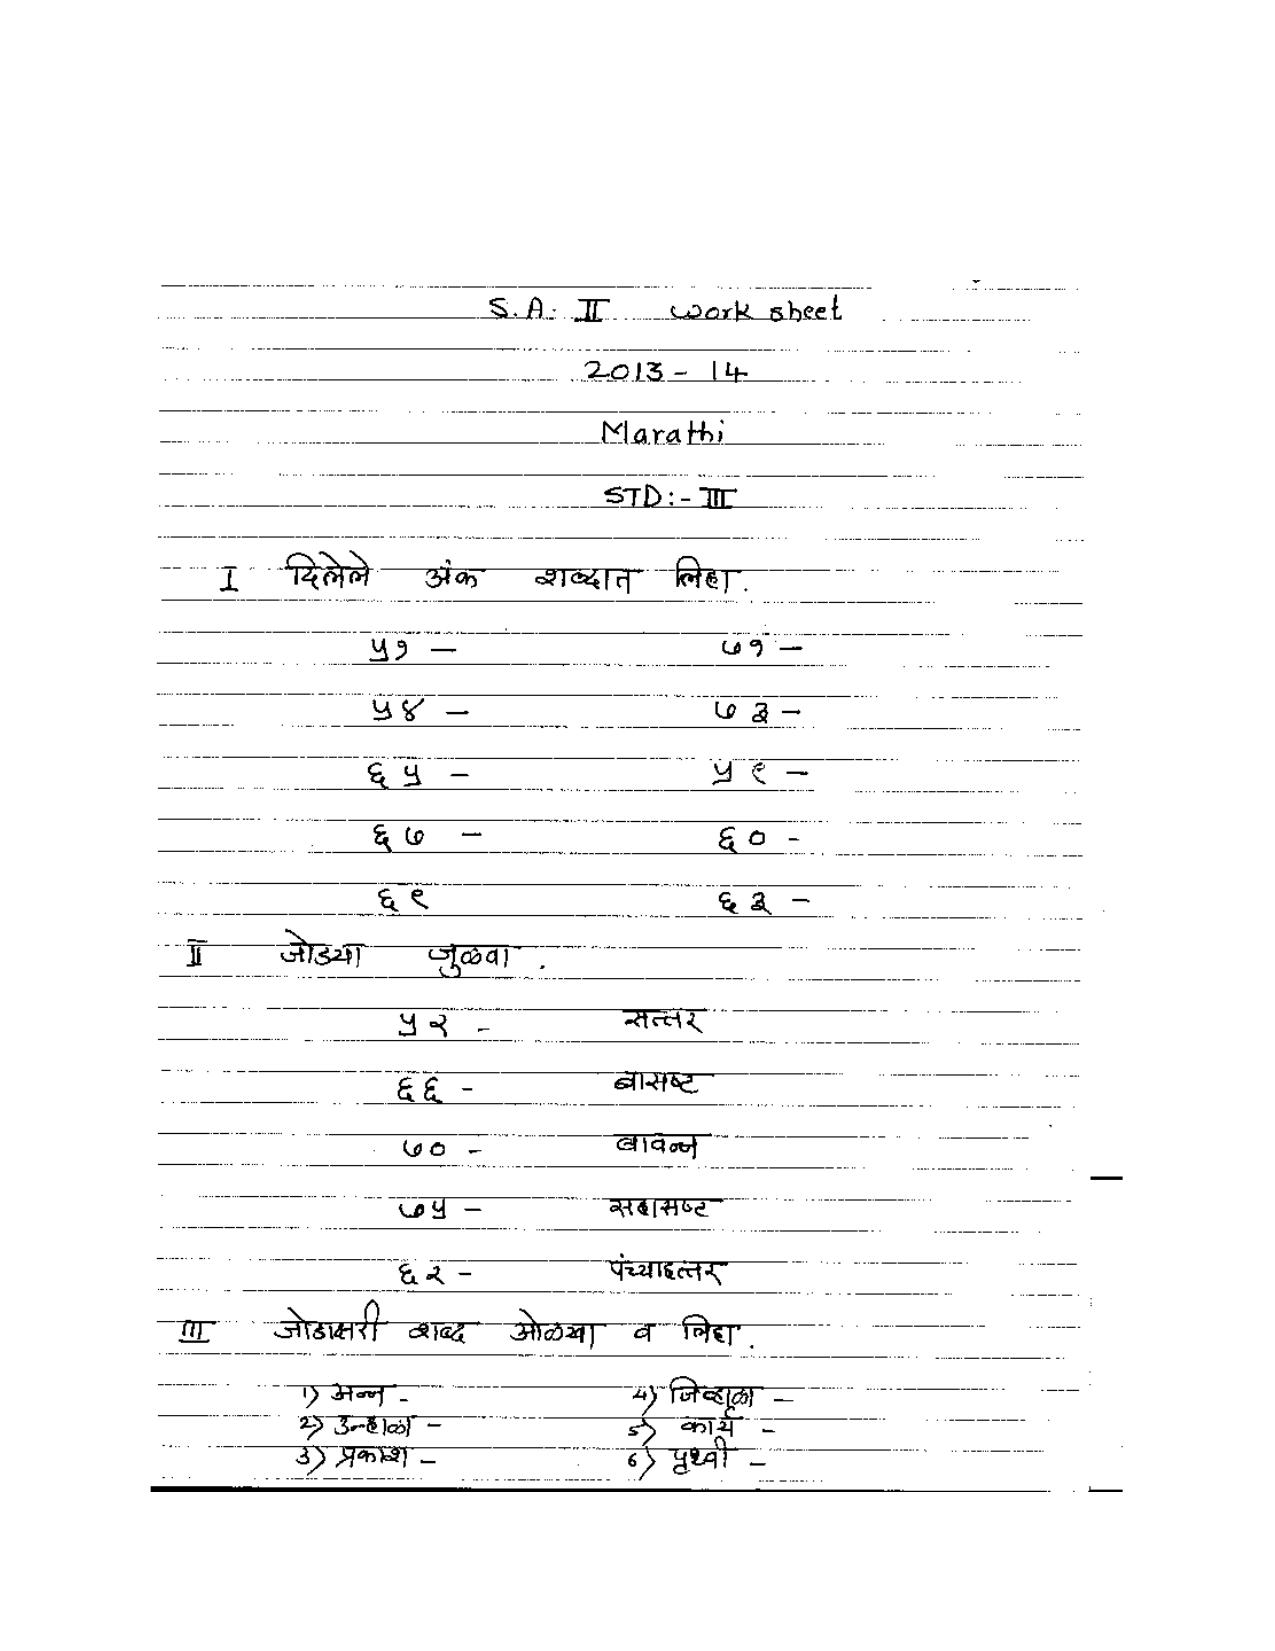 S.A. II work sheet
2013 - 14
Marathi
STD:- III
I दिलेले अंक शब्दात लिहा.
५१ — ७१ —
५४ — ७३ —
६५ — ५९ —
६७ — ६० -
६९ ६३ —
II जोडया जुळवा .
५२ - सत्तर
६६ - बासष्ट
७० - बावन्न
७५ — सहासष्ट
६२ - पंच्याहत्तर
III जोडाक्षरी शब्द ओळखा व लिहा.
1) अन्न - 4) जिव्हाळा —
2) उन्हाळा — 5) कार्य -
3) प्रकाश - 6) पृथ्वी —